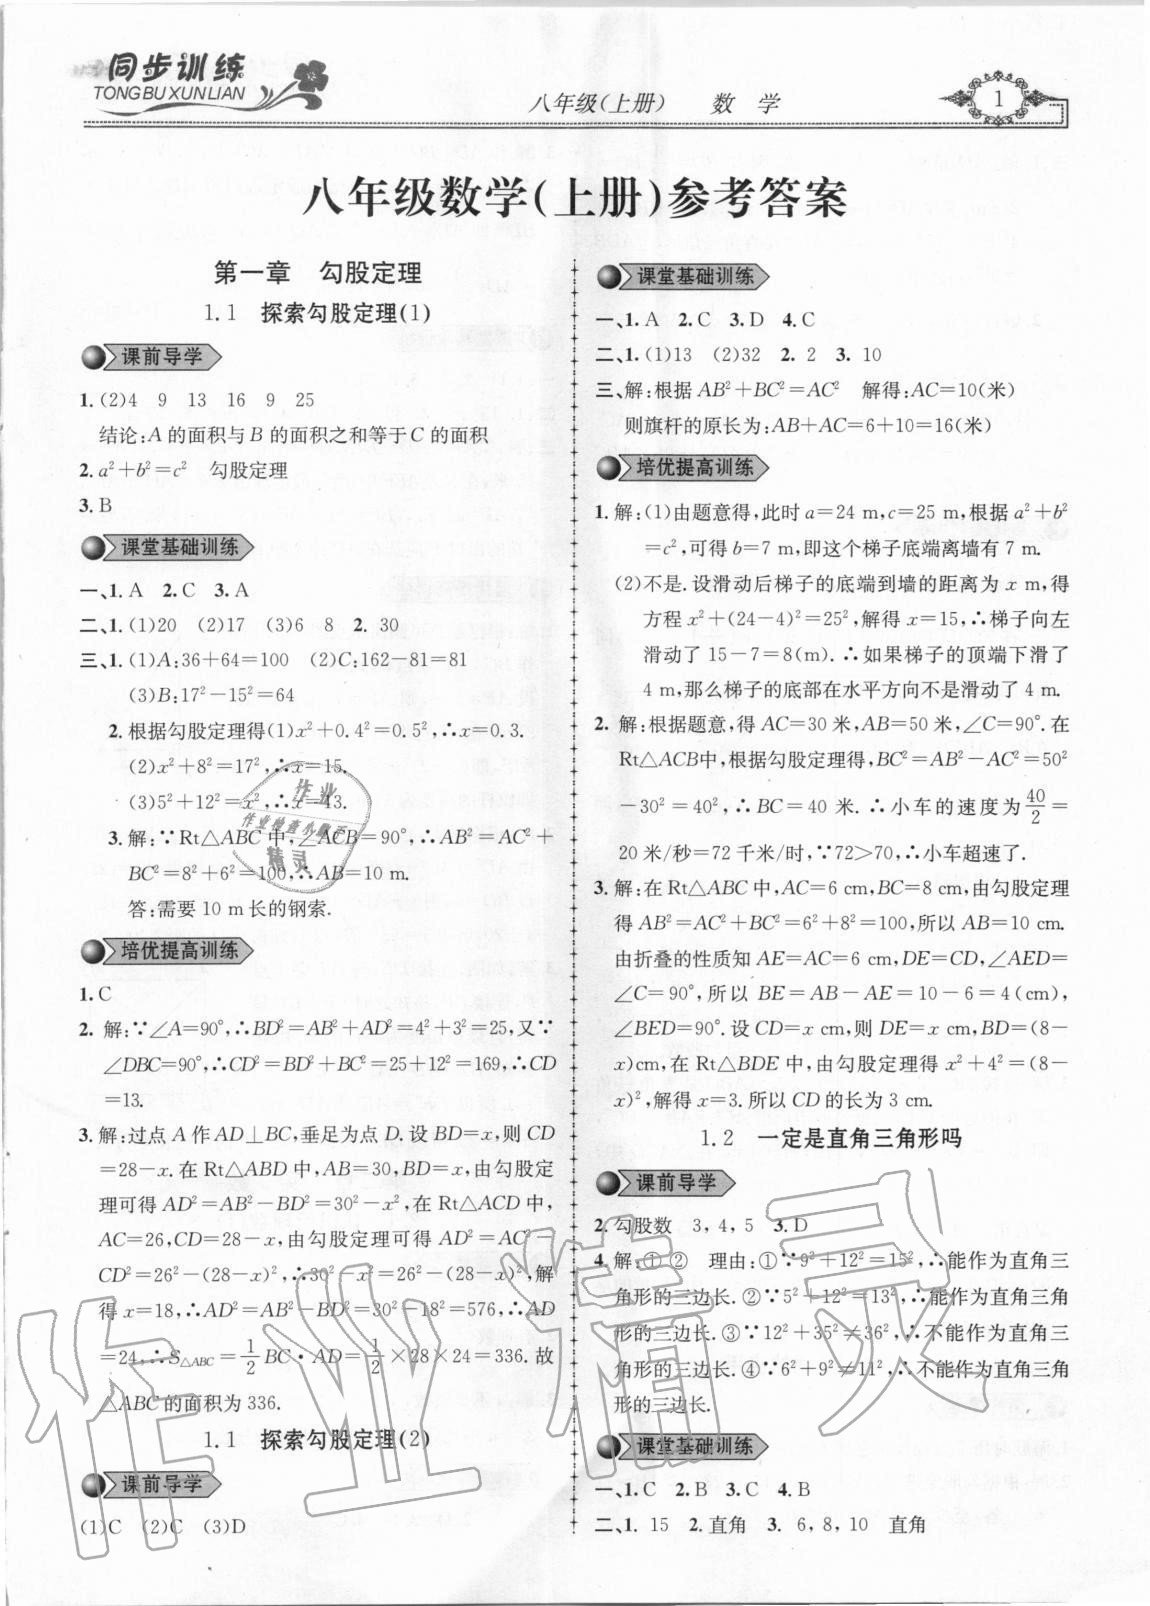 同步训练
TONGBUXUNLIAN
八年级(上册) 数 学
1
八年级数学(上册)参考答案
第一章 勾股定理
1.1 探索勾股定理(1)
课前导学
1.(2)4 9 13 16 9 25
结论:A 的面积与 B 的面积之和等于 C 的面积
2.a²+b²=c² 勾股定理
3.B
课堂基础训练
一、1.A 2.C 3.A
二、1.(1)20 (2)17 (3)6 8 2.30
三、1.(1)A:36+64=100 (2)C:162-81=81
(3)B:17²-15²=64
2.根据勾股定理得(1)x²+0.4²=0.5²,∴x=0.3.
(2)x²+8²=17²,∴x=15.
(3)5²+12²=x²,∴x=13.
3.解:∵Rt△ABC 中,∠ACB=90°,∴AB²=AC²+
BC²=8²+6²=100,∴AB=10 m.
答:需要 10 m 长的钢索.
培优提高训练
1.C
2. 解:∵∠A=90°,∴BD²=AB²+AD²=4²+3²=25,又∵
∠DBC=90°,∴CD²=BD²+BC²=25+12²=169,∴CD
=13.
3.解:过点 A 作 AD⊥BC,垂足为点 D.设 BD=x,则 CD
=28-x.在 Rt△ABD 中,AB=30,BD=x,由勾股定
理可得 AD²=AB²-BD²=30²-x²,在 Rt△ACD 中,
AC=26,CD=28-x,由勾股定理可得 AD²=AC²-
CD²=26²-(28-x)²,∴30²-x²=26²-(28-x)²,解
得 x=18,∴AD²=AB²-BD²=30²-18²=576,∴AD
=24,∴S△ABC=1/2 BC·AD=1/2×28×24=336.故
△ABC 的面积为 336.
1.1 探索勾股定理(2)
课前导学
(1)C (2)C (3)D
课堂基础训练
一、1.A 2.C 3.D 4.C
二、1.(1)13 (2)32 2. 2 3. 10
三、解:根据 AB²+BC²=AC² 解得:AC=10(米)
则旗杆的原长为:AB+AC=6+10=16(米)
培优提高训练
1.解:(1)由题意得,此时 a=24 m,c=25 m,根据 a²+b²
=c²,可得 b=7 m,即这个梯子底端离墙有 7 m.
(2)不是.设滑动后梯子的底端到墙的距离为 x m,得
方程 x²+(24-4)²=25²,解得 x=15,∴梯子向左
滑动了 15-7=8(m).∴如果梯子的顶端下滑了
4 m,那么梯子的底部在水平方向不是滑动了 4 m.
2.解:根据题意,得 AC=30 米,AB=50 米,∠C=90°.在
Rt△ACB中,根据勾股定理得,BC²=AB²-AC²=50²
-30²=40²,∴BC=40 米.∴小车的速度为40/2=
20 米/秒=72 千米/时,∵72>70,∴小车超速了.
3.解:在 Rt△ABC 中,AC=6 cm,BC=8 cm,由勾股定理
得 AB²=AC²+BC²=6²+8²=100,所以 AB=10 cm.
由折叠的性质知 AE=AC=6 cm,DE=CD,∠AED=
∠C=90°,所以 BE=AB-AE=10-6=4(cm),
∠BED=90°.设 CD=x cm,则 DE=x cm,BD=(8-
x)cm,在 Rt△BDE 中,由勾股定理得 x²+4²=(8-
x)²,解得 x=3.所以 CD 的长为 3 cm.
1.2 一定是直角三角形吗
课前导学
2.勾股数 3,4,5 3.D
4.解:①② 理由:①∵9²+12²=15²,∴能作为直角三
角形的三边长.②∵5²+12²=13²,∴能作为直角三角
形的三边长.③∵12²+35²≠36²,∴不能作为直角三
角形的三边长.④∵6²+9²≠11²,∴不能作为直角三角
形的三边长.
课堂基础训练
一、1.C 2.B 3.C 4.B
二、1. 15 2.直角 3. 6,8,10 直角
作业
作业检查小助手
精灵
作业精灵